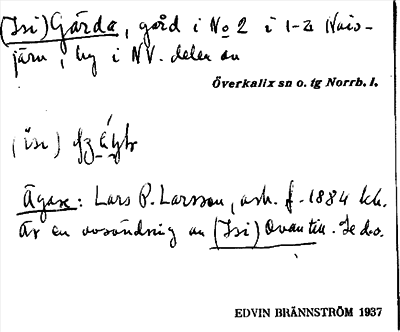 (Isi)Gärda, gård i No 2 i 1-2 Nais-
järv, by i NV. delen av
Överkalix sn o. tg Norrb. l.
(isi)
Ägare: Lars P. Larsson, arb. f. 1884 kk.
Är en avsöndring av (Isi)Ovantill. Se do.
EDVIN BRÄNNSTRÖM 1937